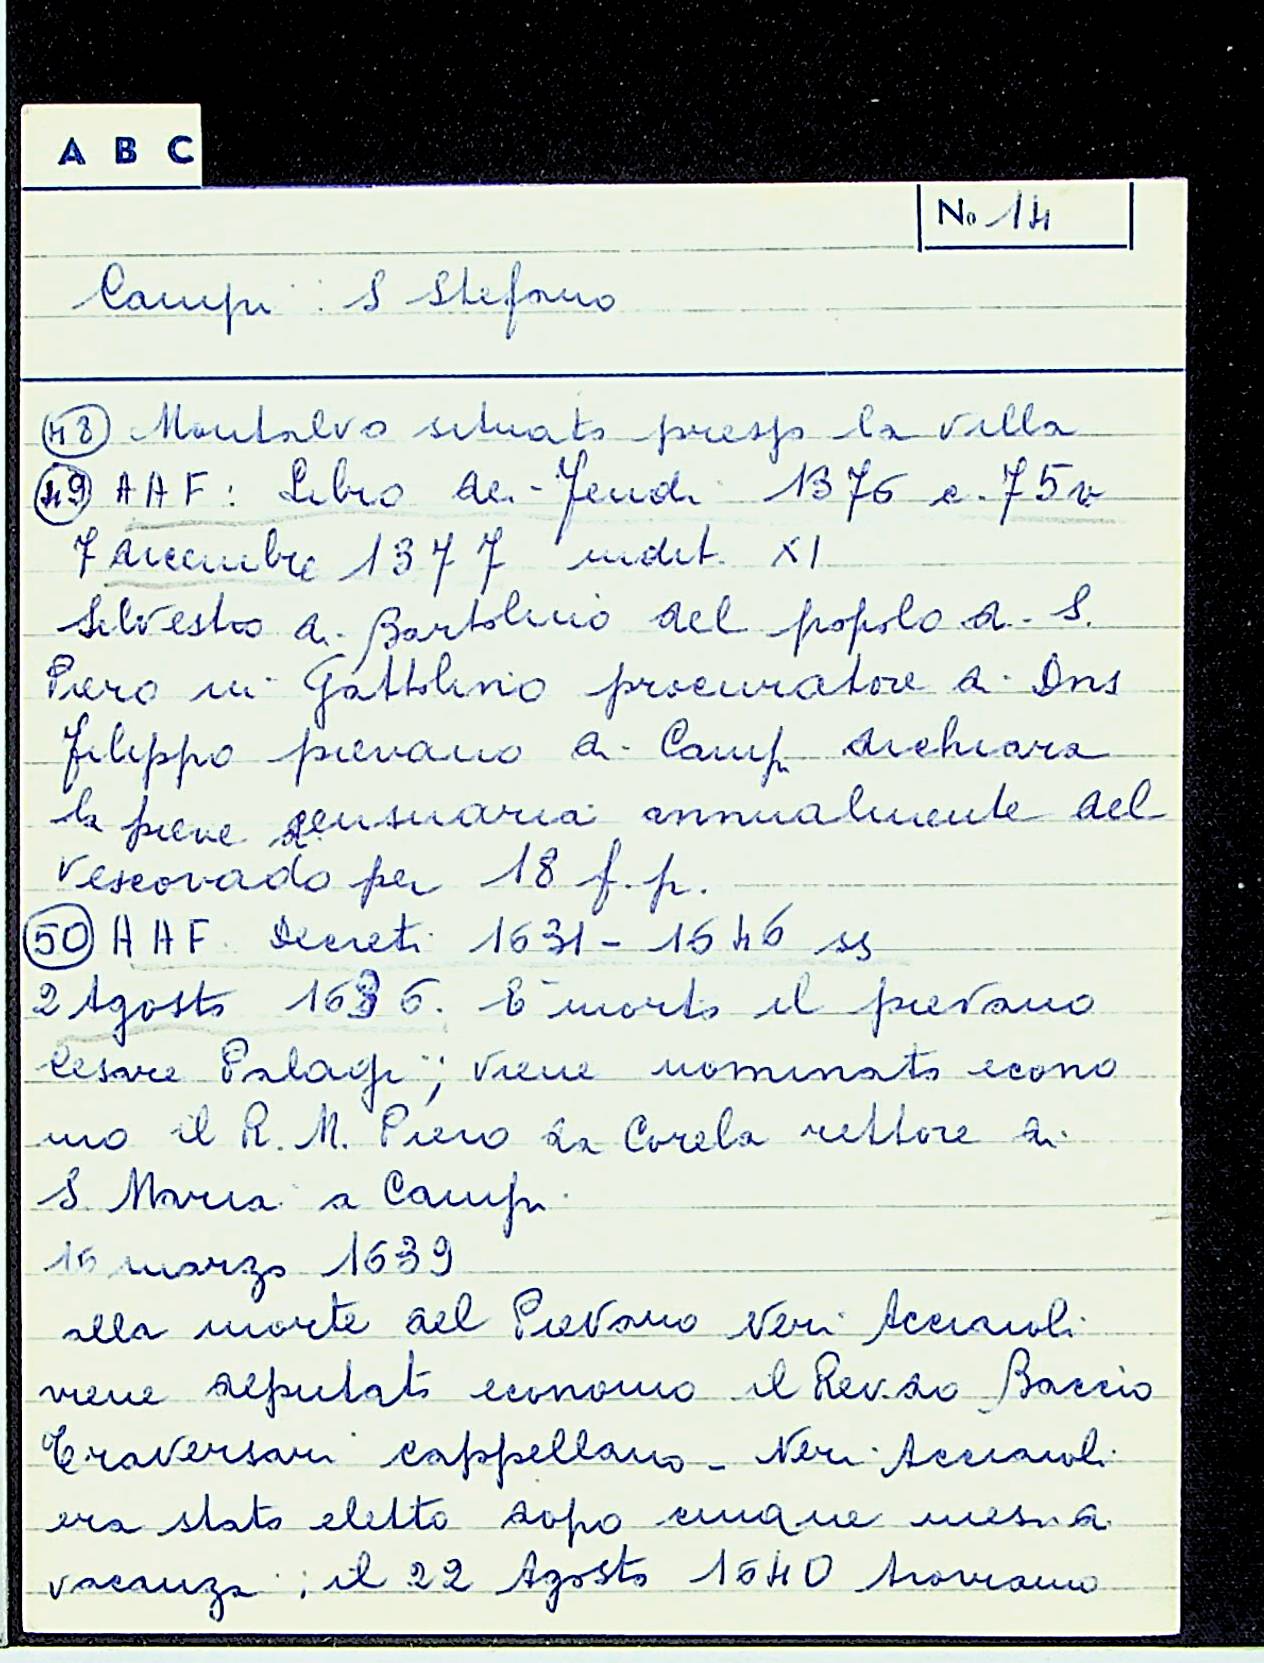 A B C
No 14
Campi: S Stefano
48 Montalvo situato presso la villa
49 AAF: Libro dei Feudi 1376 c. 75v
7 dicembre 1377 indit. XI
Silvestro di Bartolino del popolo di S.
Piero in Gattolino procuratore di Dns
Filippo pievano di Campi dichiara
la pieve censuaria annualmente del
Vescovado per 18 f. p.
50 AAF. Decreti 1631-1646 ss
2 Agosto 1636. E' morto il pievano
Cesare Palagi; viene nominato econo
mo il R. M. Piero da Corela rettore di
S. Maria a Campi
16 marzo 1639
alla morte del Pievano Neri Acciaioli
viene deputato economo il Rev.do Baccio
Traversari cappellano - Neri Acciaioli
era stato eletto dopo cinque mesi di
vacanza; il 22 Agosto 1640 troviamo